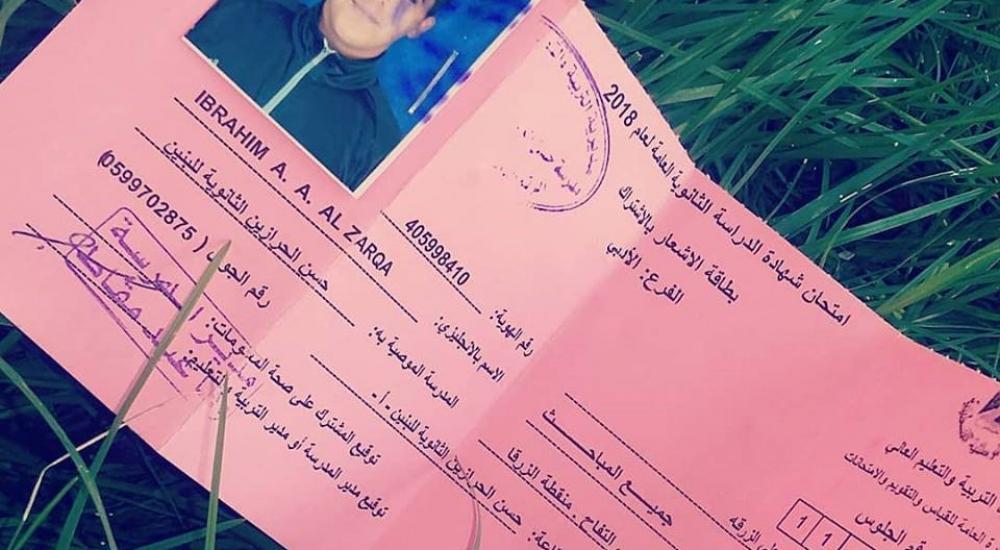 امتحان شهادة الدراسة الثانوية العامة لعام 2018
بطاقة الاشعار بالاشتراك
الفرع: الأدبي
رقم الهوية: 405998410
الاسم بالانجليزي: IBRAHIM A. A. AL ZARQA
المدرسة الموصية به: حسن الحرازين الثانوية للبنين
رقم الجوال ( 0599702875)
توقيع المشترك على صحة المعلومات:
توقيع مدير المدرسة أو مدير التربية والتعليم:
التربية والتعليم العالي
العامة للقياس والتقويم والامتحانات
رقم الجلوس 1 1
جميع المباحث
التفاح . منقطة الزرقا
حسن الحرازين الثانوية للبنين -أ-